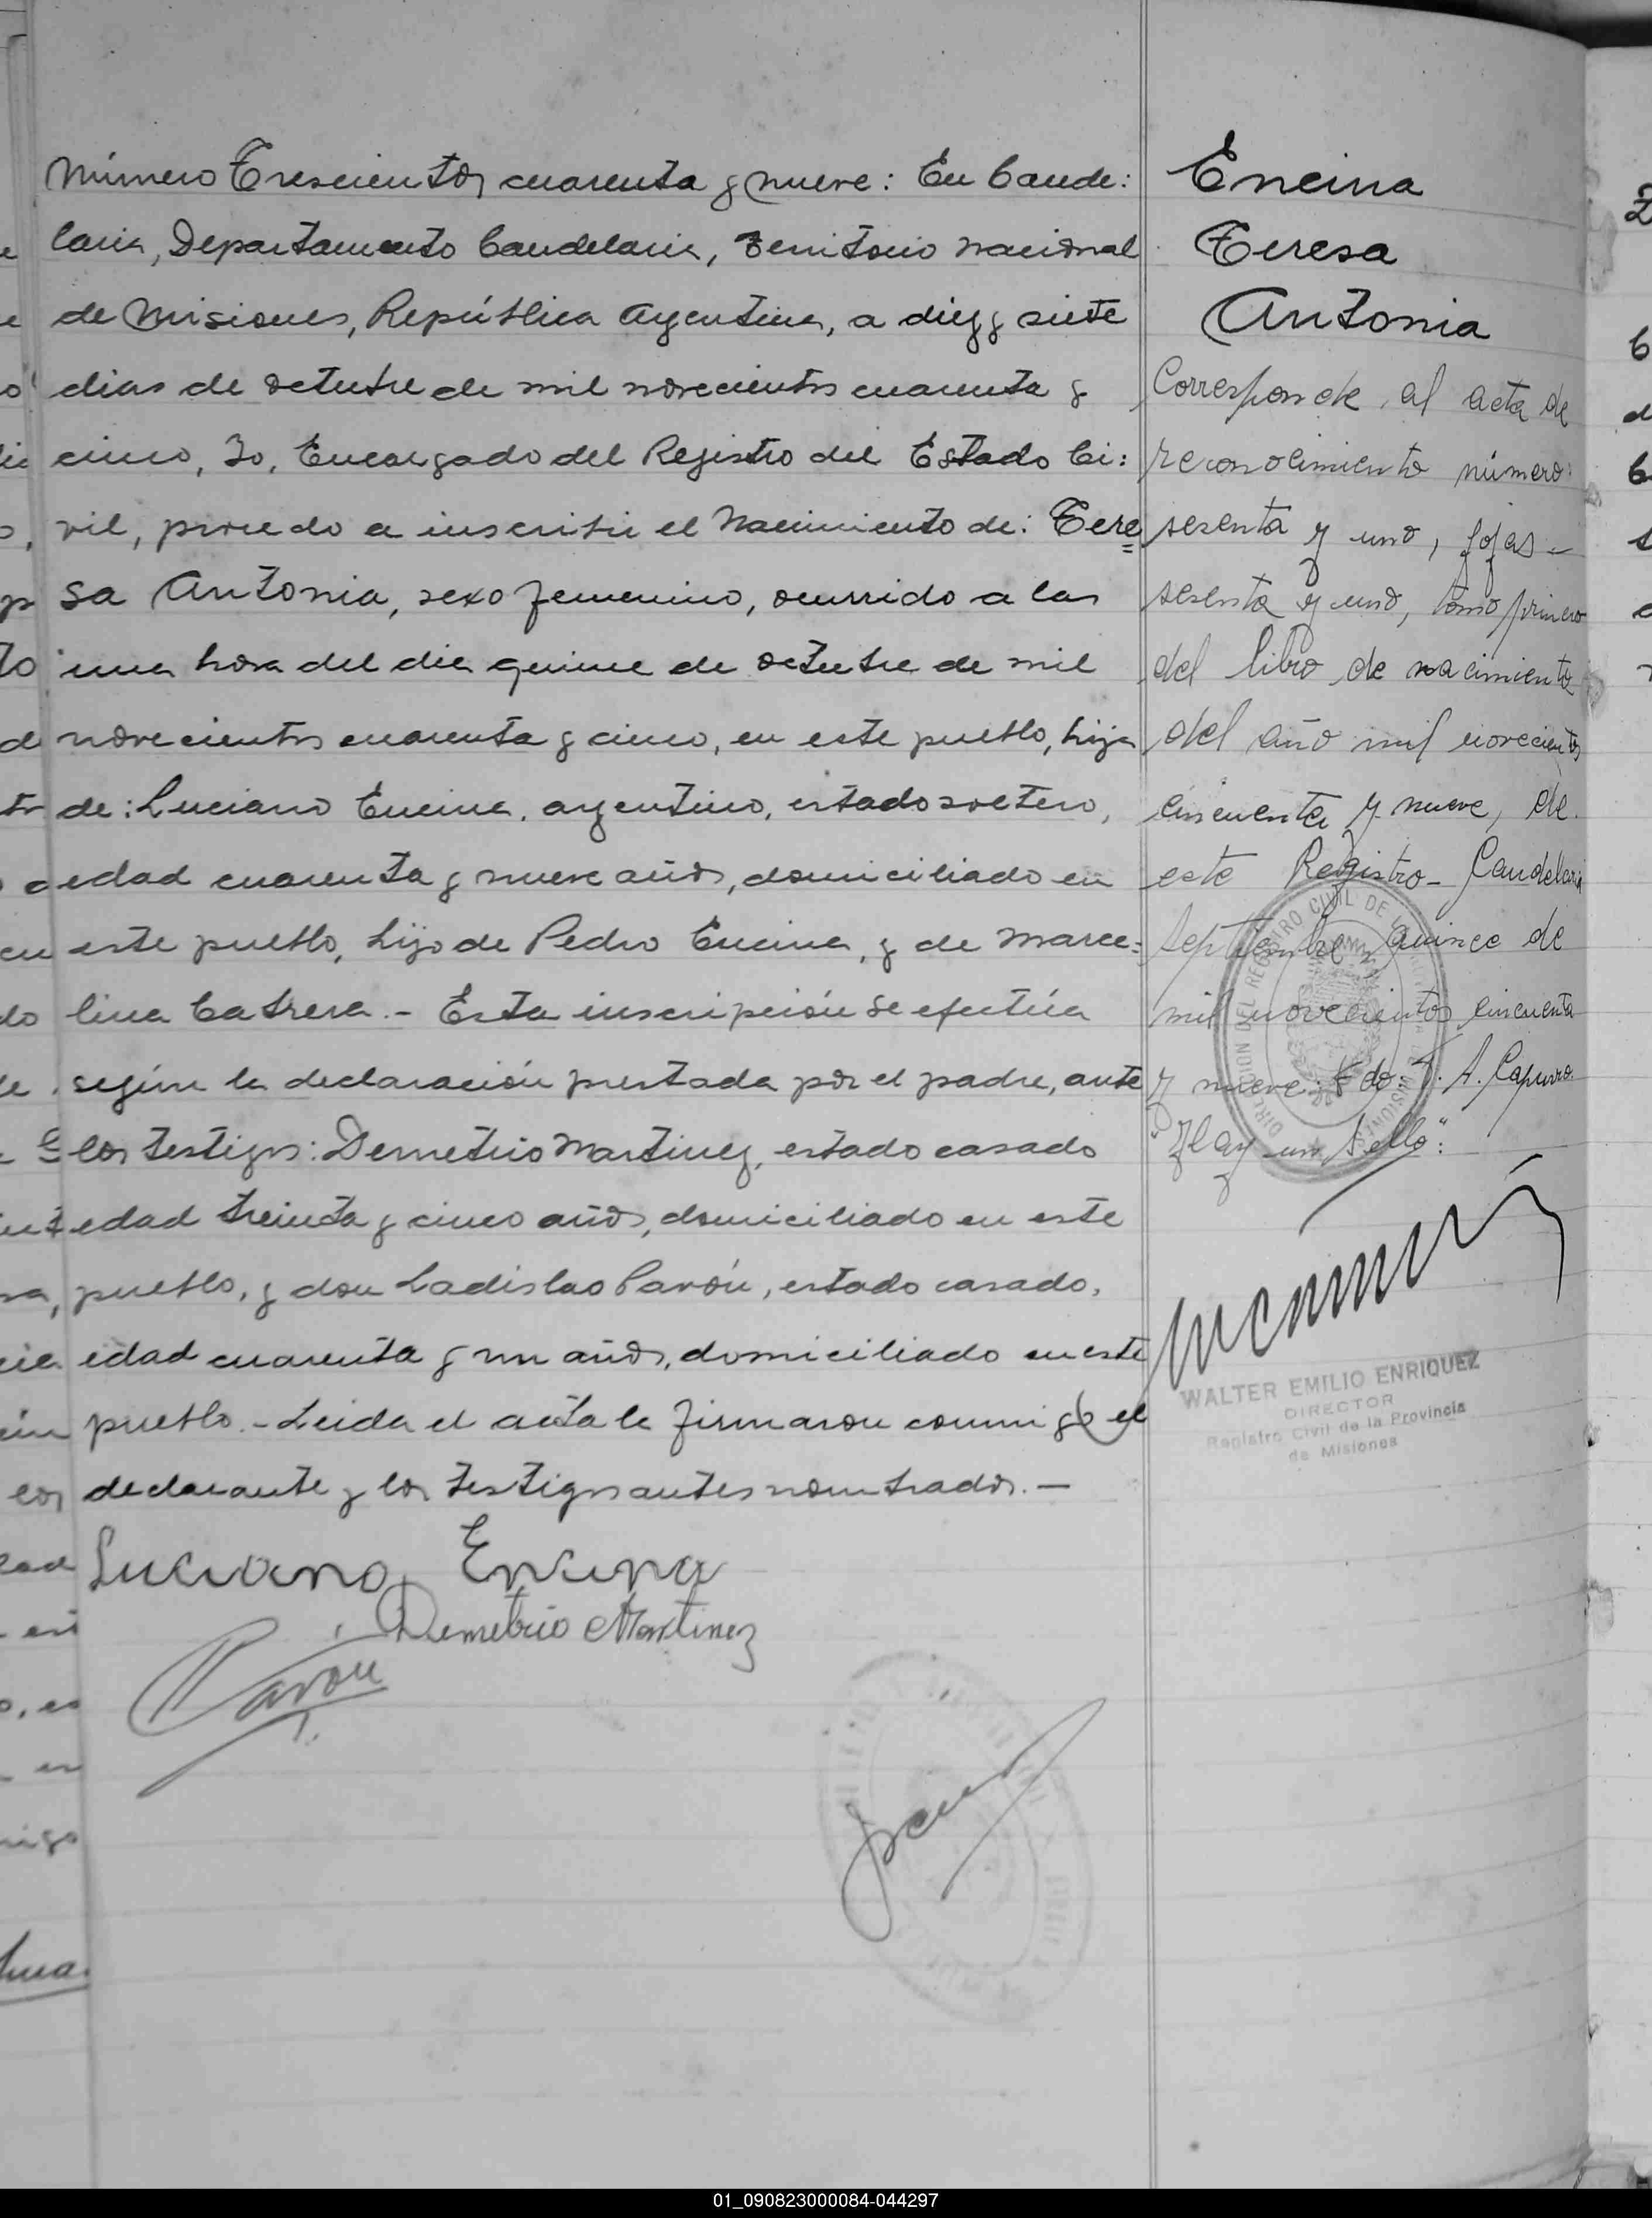 Número Trescientos cuarenta y nueve: En Cande:
laria, Departamento Candelaria, Territorio Nacional
de Misiones, República Argentina, a diez y siete
dias de octubre de mil novecientos cuarenta y
cinco, Yo, Encargado del Registro del Estado Ci:
vil, procedo a inscribir el Nacimiento de: Tere=
sa Antonia, sexo femenino, ocurrido a las
una hora del dia quince de octubre de mil
novecientos cuarenta y cinco, en este pueblo, hija
de: Luciano Encina, argentino, estado soltero,
edad cuarenta y nueve años, domiciliado en
este pueblo, hijo de Pedro Encina, y de Marce=
lina Cabrera.- Esta inscripción se efectúa
según la declaración prestada por el padre, ante
los testigos: Demetrio Martinez, estado casado
edad treinta y cinco años, domiciliado en este
pueblo, y don Ladislao Pavón, estado casado,
edad cuarenta y un años, domiciliado en este
pueblo.- Leida el acta la firmaron conmigo el
declarante y los testigos antes nombrados.—
Luciano Encina
Demetrio Martinez
Pavon
Encina
Teresa
Antonia
Corresponde al acta de
reconocimiento número:
sesenta y uno, fojas-
sesenta y uno, tomo primero
del libro de nacimiento
del año mil novecientos
cincuenta y nueve, de
este Registro- Candelaria
Septiembre quince de
mil novecientos cincuenta
y nueve. Fdo: T. A. Capurro.
"Hay un Sello":
WALTER EMILIO ENRIQUEZ
DIRECTOR
Registro Civil de la Provincia
de Misiones
01_090823000084-044297